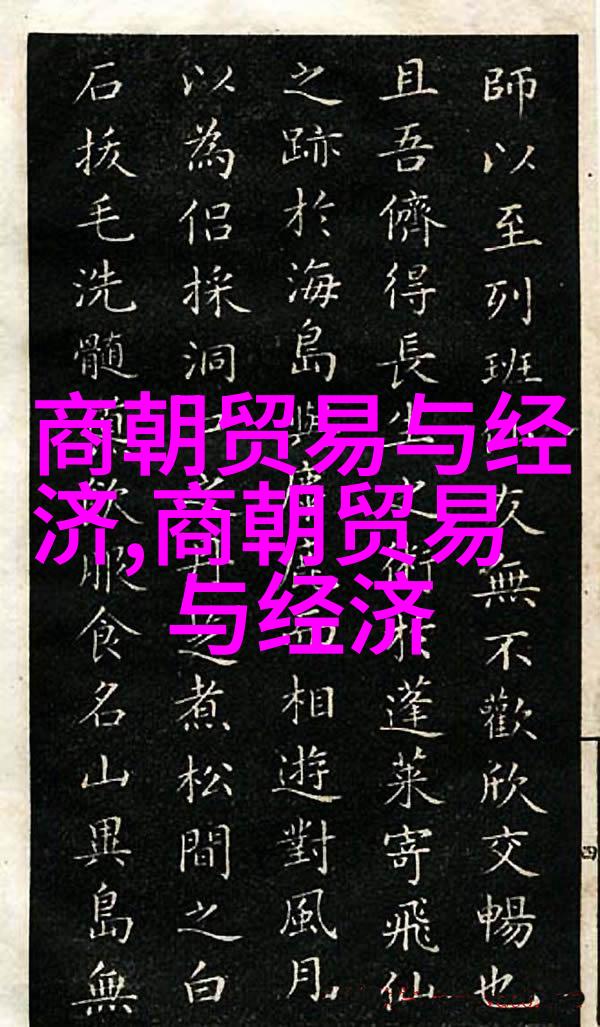 商朝贸易与经
济,商朝贸易
与经济
師以至列班友無不歡欣交暢也
且吾儕得長生術於蓬萊寄飛仙
之跡於海島嶼而相遊對風月
以為侶採洞之煮松間之白
石拔毛洗髓服食名山異島無
四